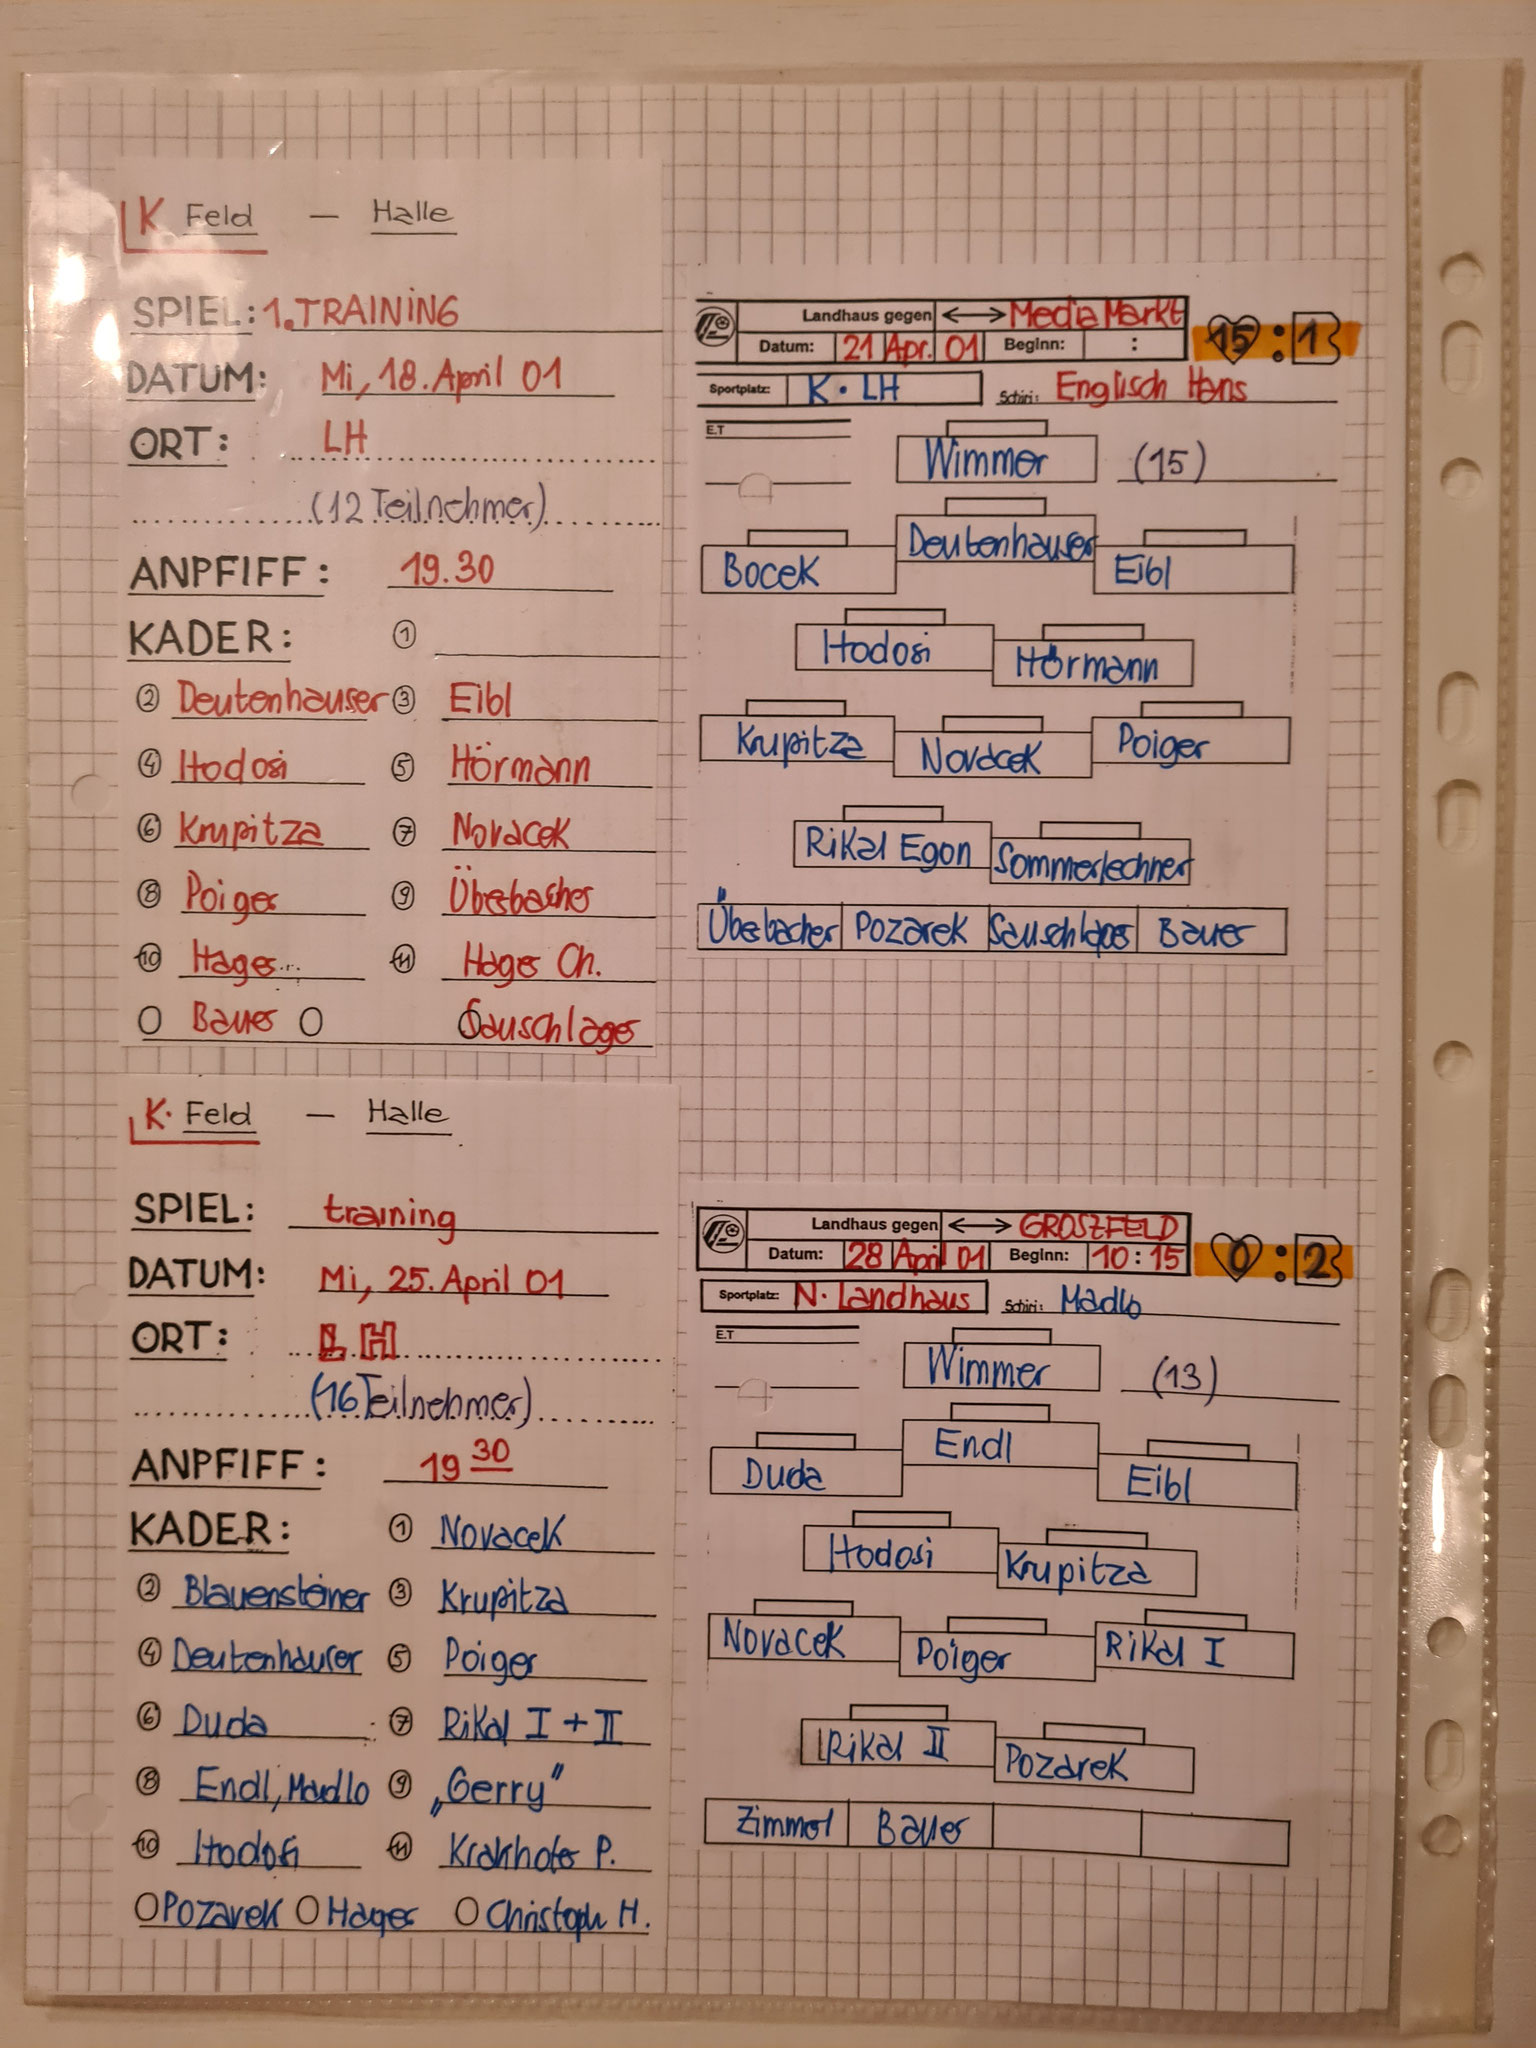 K Feld — Halle
SPIEL: 1. TRAINING
DATUM: Mi, 18. April 01
ORT: LH
(12 Teilnehmer)
ANPFIFF: 19.30
KADER: ①
② Deutenhauser ③ Eibl
④ Hodosi ⑤ Hörmann
⑥ Krupitza ⑦ Novacek
⑧ Poiger ⑨ Überbacher
⑩ Hager ⑪ Hager Ch.
Bauer Sauschlager
Landhaus gegen ↔ Media Markt 15 : 1
Datum: 21 Apr. 01 Beginn: :
Sportplatz: K. LH Schiri: Englisch Hans
E.T
Wimmer (15)
Deutenhauser
Bocek Eibl
Hodosi Hörmann
Krupitza Novacek Poiger
Rikal Egon Sommerlechner
Überbacher Pozarek Sauschlager Bauer
K. Feld — Halle
SPIEL: training
DATUM: Mi, 25. April 01
ORT: LH
(16 Teilnehmer)
ANPFIFF: 19 30
KADER: ① Novacek
② Blauensteiner ③ Krupitza
④ Deutenhauser ⑤ Poiger
⑥ Duda ⑦ Rikal I + II
⑧ Endl, Madlo ⑨ „Gerry"
⑩ Hodosi ⑪ Krakhofer P.
Pozarek Hager Christoph H.
Landhaus gegen ↔ GROSZFELD 0 : 2
Datum: 28 April 01 Beginn: 10 : 15
Sportplatz: N. Landhaus Schiri: Madlo
E.T
Wimmer (13)
Endl
Duda Eibl
Hodosi Krupitza
Novacek Poiger Rikal I
Rikal II Pozarek
Zimmel Bauer